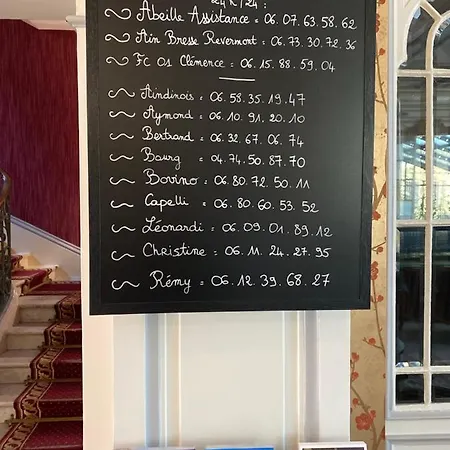 24h/24 :
~ Abeille Assistance = 06.07.63.58.62
~ Ain Bresse Revermont = 06.73.30.72.36
~ FC 01 Clémence = 06.15.88.59.04
~ Aindinois = 06.58.35.19.47
~ Aymond = 06.10.91.20.10
~ Bertrand = 06.32.67.06.74
~ Bourg = 04.74.50.87.70
~ Bovino = 06.80.72.50.11
~ Capelli = 06.80.60.53.52
~ Léonardi = 06.09.01.89.12
~ Christine = 06.11.24.27.95
~ Rémy = 06.12.39.68.27